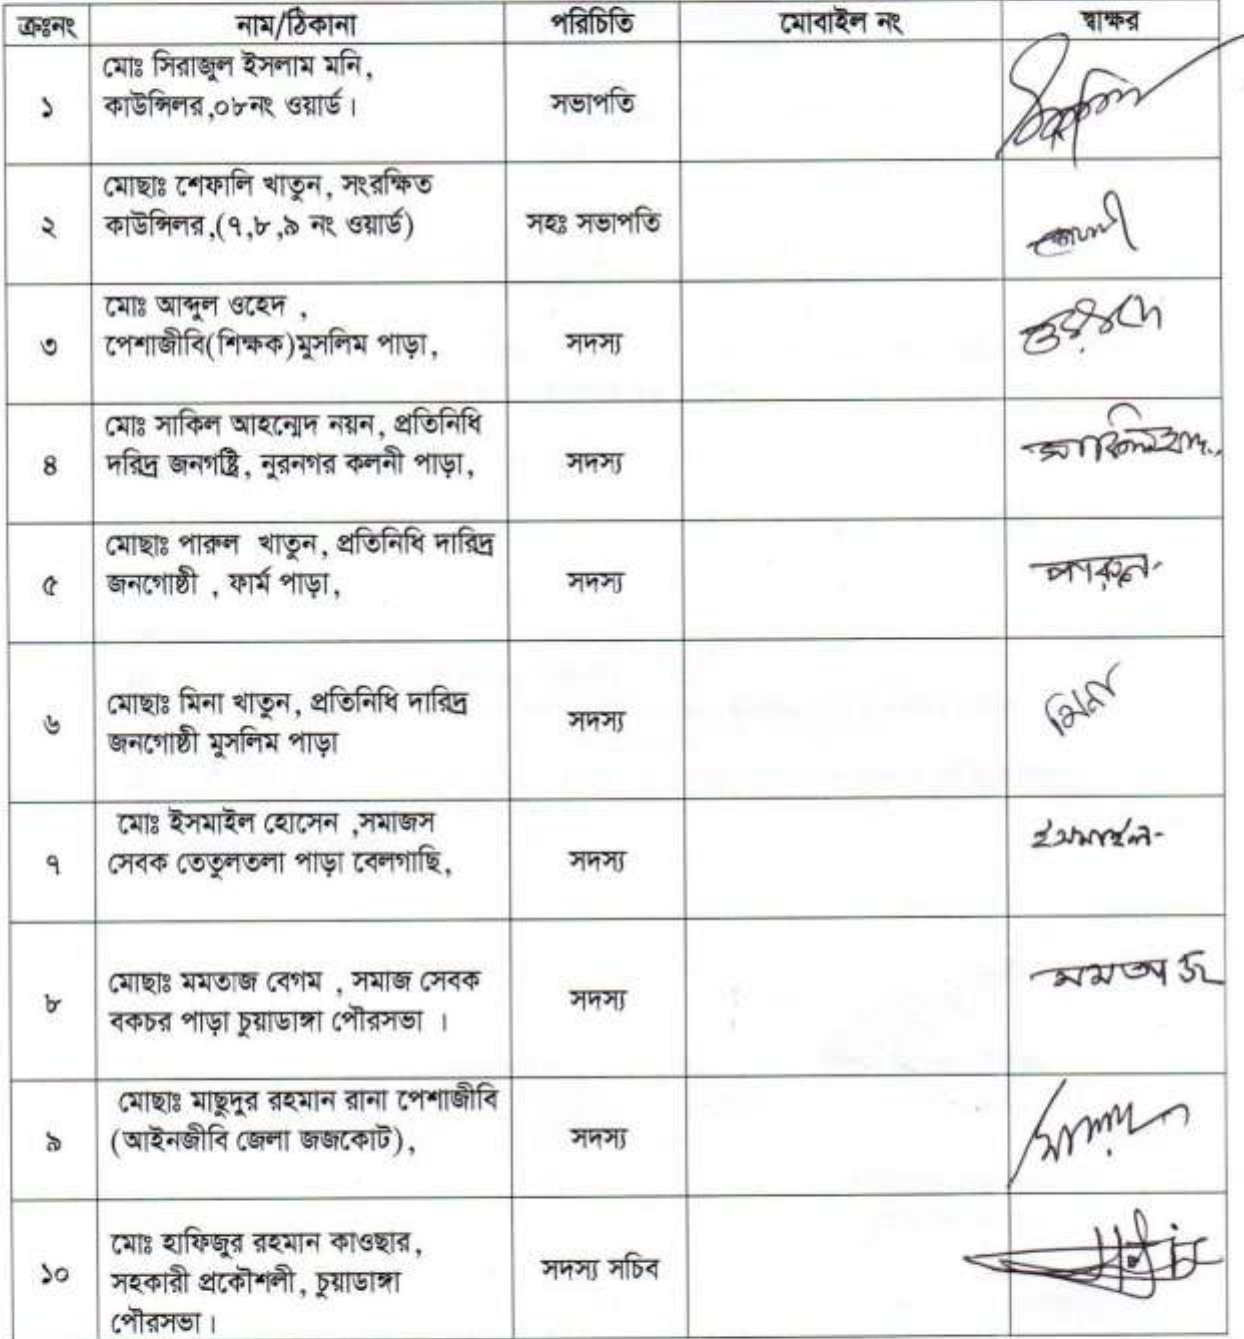 ক্রঃনং নাম/ঠিকানা পরিচিতি মোবাইল নং স্বাক্ষর
মোঃ সিরাজুল ইসলাম মনি,
১ কাউন্সিলর,০৮নং ওয়ার্ড। সভাপতি
মোছাঃ শেফালি খাতুন, সংরক্ষিত
২ কাউন্সিলর,(৭,৮,৯ নং ওয়ার্ড) সহঃ সভাপতি
মোঃ আব্দুল ওহেদ ,
৩ পেশাজীবি(শিক্ষক)মুসলিম পাড়া, সদস্য
মোঃ সাকিল আহন্মেদ নয়ন, প্রতিনিধি
৪ দরিদ্র জনগষ্ট্রি, নুরনগর কলনী পাড়া, সদস্য
মোছাঃ পারুল খাতুন, প্রতিনিধি দারিদ্র
৫ জনগোষ্ঠী , ফার্ম পাড়া, সদস্য পারুল
মোছাঃ মিনা খাতুন, প্রতিনিধি দারিদ্র
৬ জনগোষ্ঠী মুসলিম পাড়া সদস্য মিনা
মোঃ ইসমাইল হোসেন ,সমাজস
৭ সেবক তেতুলতলা পাড়া বেলগাছি, সদস্য ইসমাইল
মোছাঃ মমতাজ বেগম , সমাজ সেবক
৮ বকচর পাড়া চুয়াডাঙ্গা পৌরসভা । সদস্য মমতাজ
মোছাঃ মাছুদুর রহমান রানা পেশাজীবি
৯ (আইনজীবি জেলা জজকোট), সদস্য
মোঃ হাফিজুর রহমান কাওছার,
১০ সহকারী প্রকৌশলী, চুয়াডাঙ্গা সদস্য সচিব
পৌরসভা।